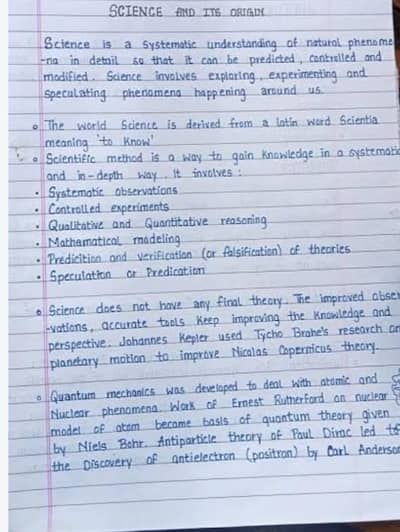 SCIENCE AND ITS ORIGIN
Science is a systematic understanding of natural phenome
-na in detail so that it can be predicted, controlled and
modified. Science involves exploring, experimenting and
speculating phenomena happening around us.
The world Science is derived from a latin word Scientia
meaning 'to know'
Scientific method is a way to gain knowledge in a systematic
and in-depth way. It involves :
• Systematic observations
• Controlled experiments
• Qualitative and Quantitative reasoning
• Mathematical modeling
• Predicition and verification (or falsification) of theories
• Speculation or Predication
Science does not have any final theory. The improved obser
-vations, accurate tools keep improving the knowledge and
perspective. Johannes Kepler used Tycho Brahe's research on
planetary motion to improve Nicolas Copernicus theory.
Quantum mechanics was developed to deal with atomic and
Nuclear phenomena. Work of Ernest Rutherford on nuclear
model of atom became basis of quantum theory given
by Niels Bohr. Antiparticle theory of Paul Dirac led to
the Discovery of antielectron (positron) by Carl Anderson